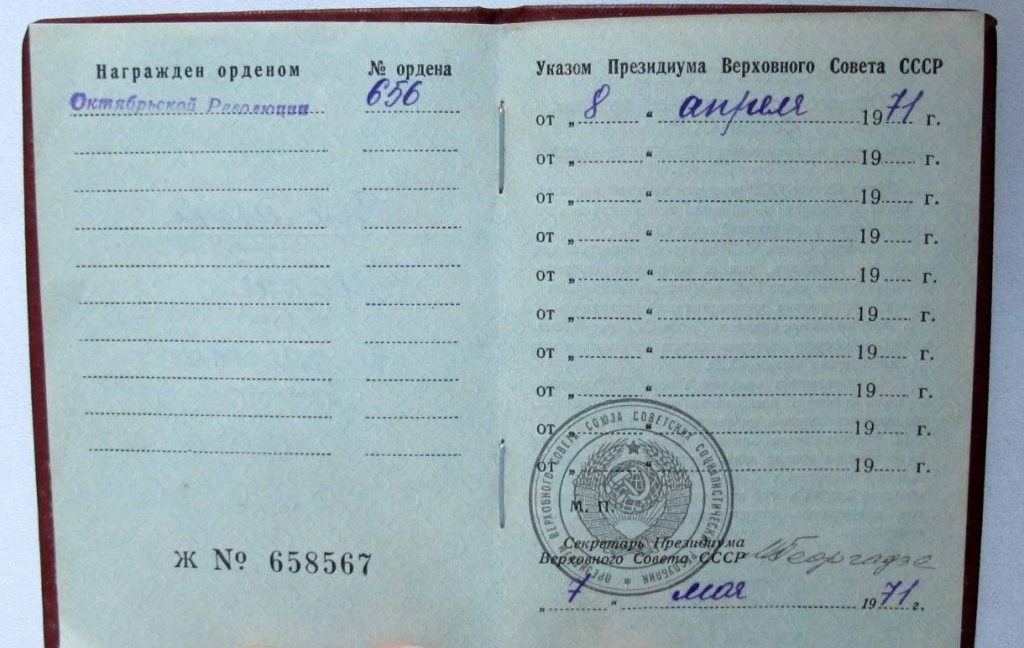 Награжден орденом
№ ордена
Октябрьской Революции
656
Ж № 658567
Указом Президиума Верховного Совета СССР
от „ 8 “ апреля 1971 г.
от „ “ 19 г.
от „ “ 19 г.
от „ “ 19 г.
от „ “ 19 г.
от „ “ 19 г.
от „ “ 19 г.
от „ “ 19 г.
от „ “ 19 г.
от „ “ 19 г.
ПРЕЗИДИУМ ВЕРХОВНОГО СОВЕТА СОЮЗА СОВЕТСКИХ СОЦИАЛИСТИЧЕСКИХ РЕСПУБЛИК
М. П.
Секретарь Президиума
Верховного Совета СССР М Георгадзе
„ 7 “ мая 1971 г.